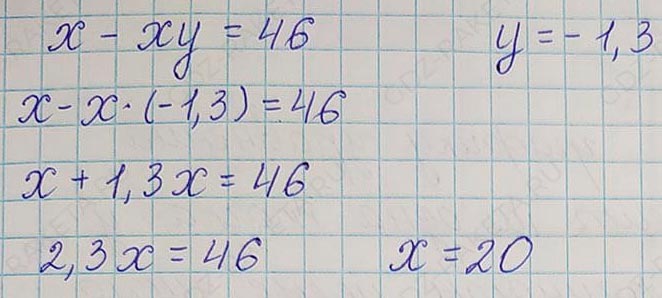 x - xy = 46 y = - 1,3
x - x · (-1,3) = 46
x + 1,3x = 46
2,3x = 46 x = 20